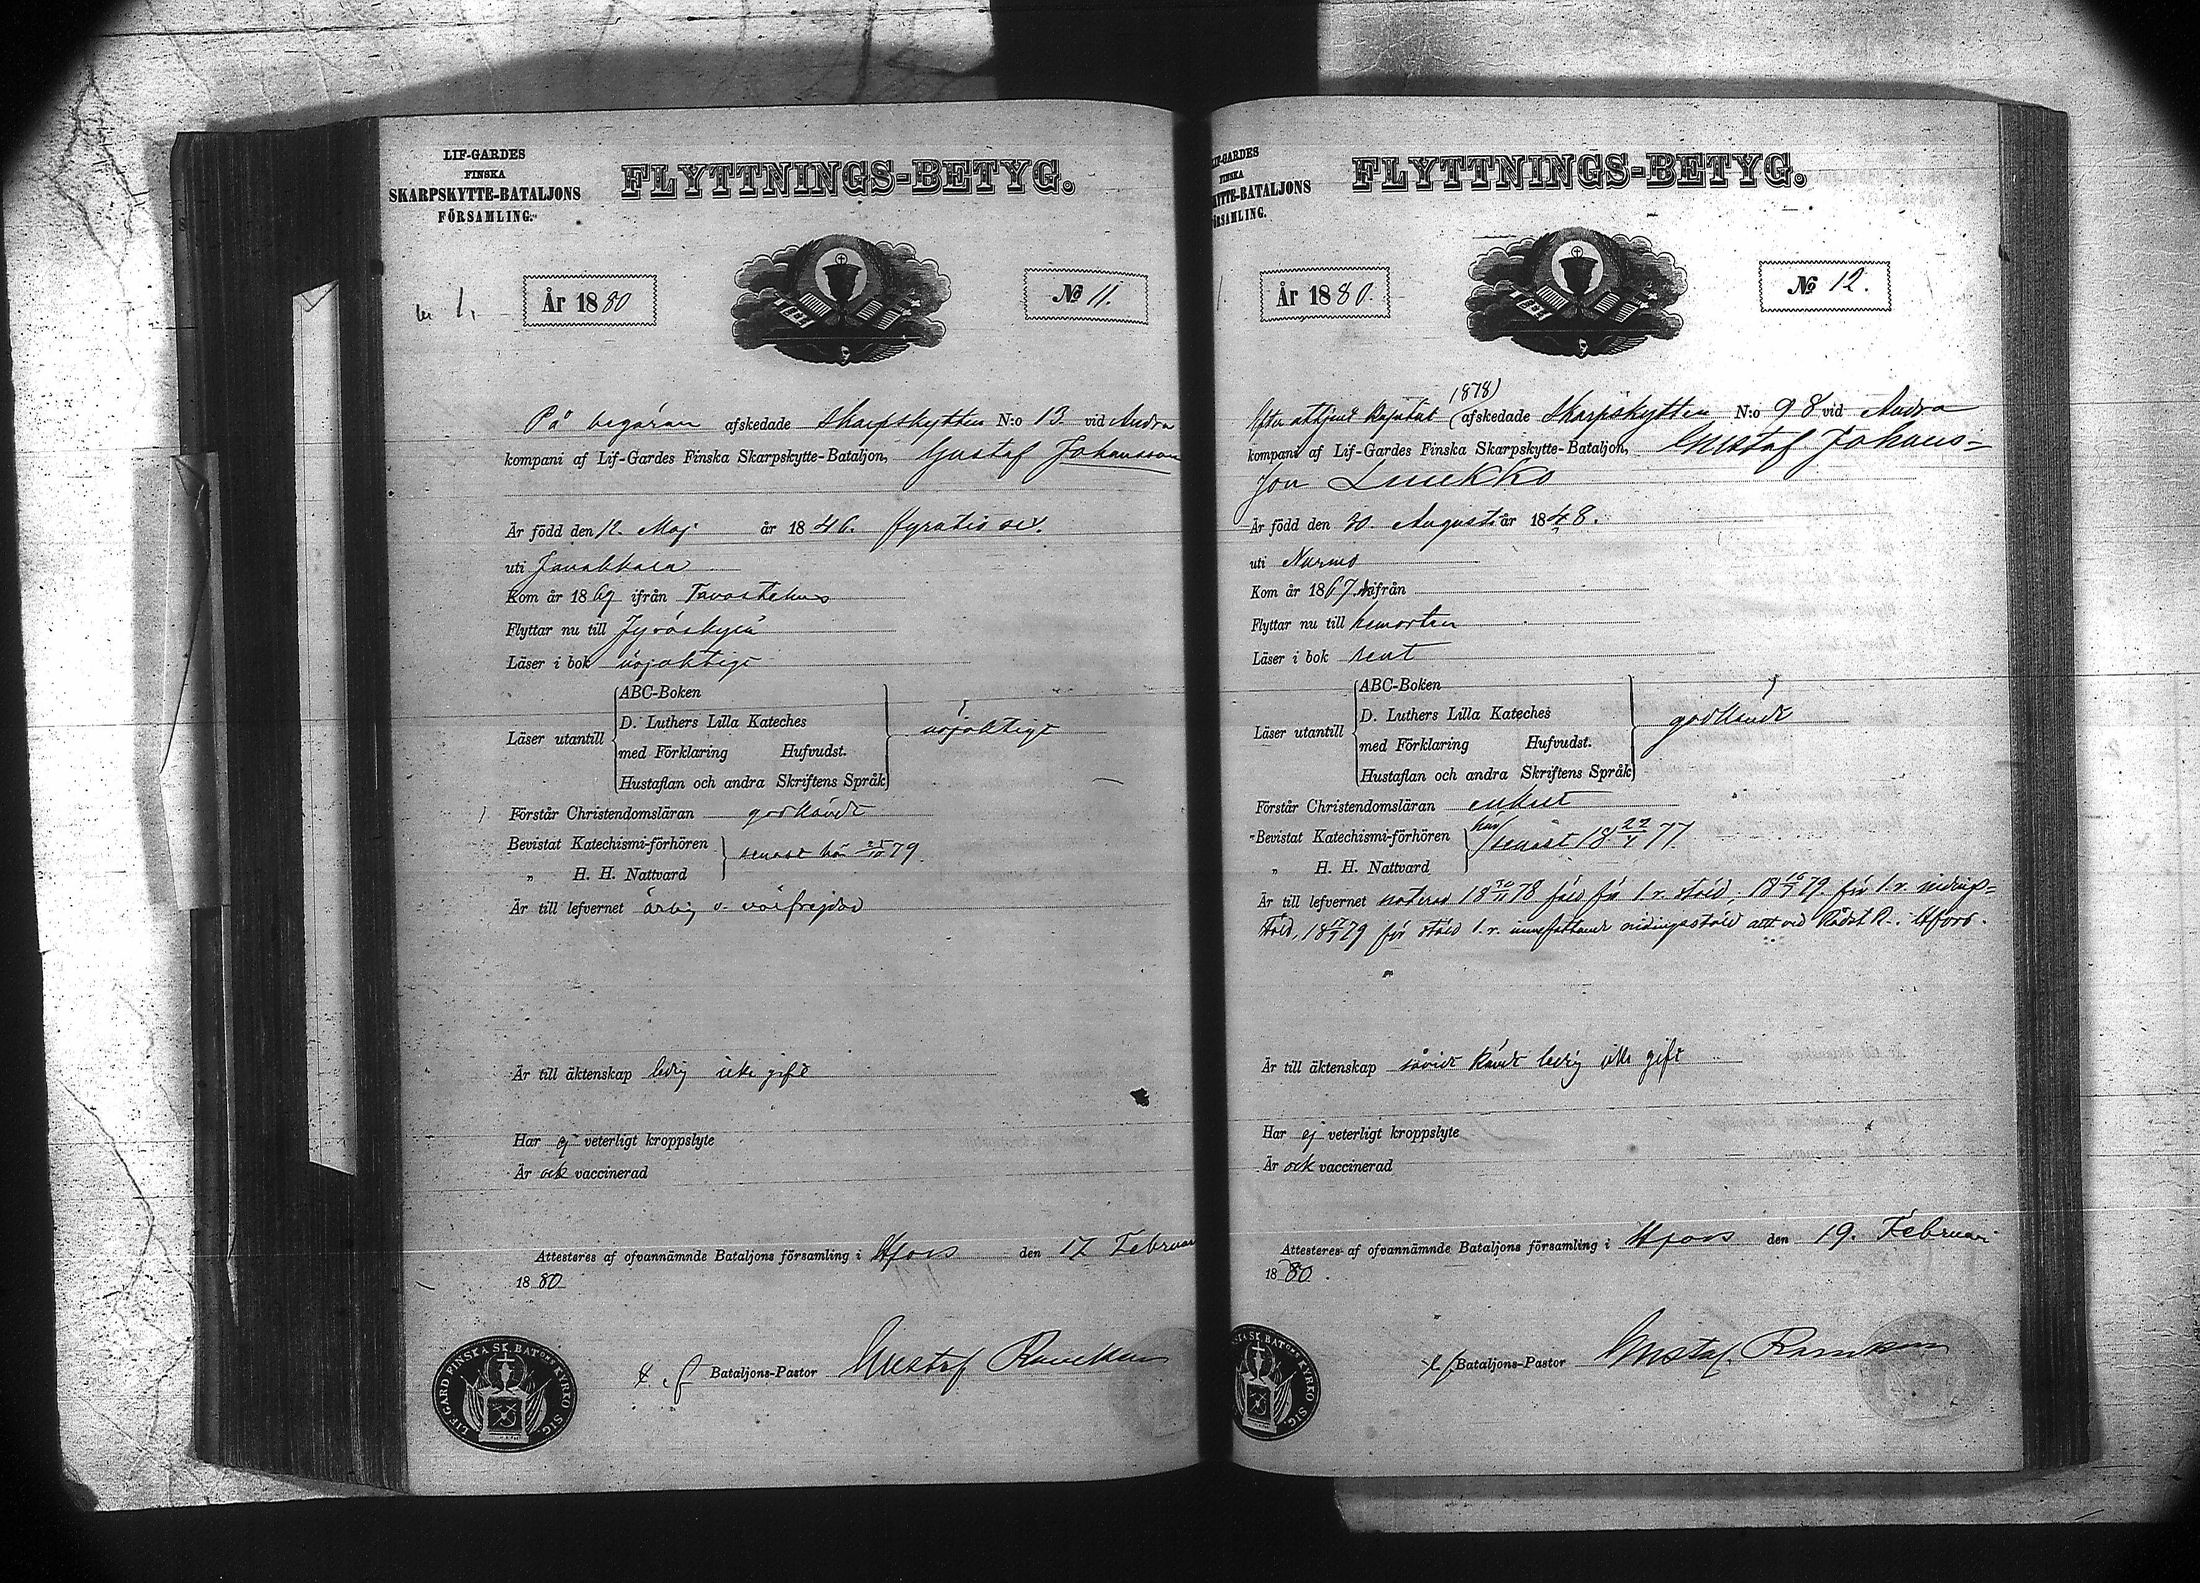 LIF-GARDES
FINSKA
SKARPSKYTTE-BATALJONS
FÖRSAMLING.
FLYTTNINGS-BETYG.
År 1880
№ 11.
På begäran afskedade Skarpskytten N:o 13 vid Andra
kompani af Lif-Gardes Finska Skarpskytte-Bataljon, Gustaf Johansson
Är född den 12. Maj år 1846. fyratio sex.
uti Janakkala
Kom år 1869 ifrån Tavastehus
Flyttar nu till Jyväskylä
Läser i bok nöjaktigt
ABC-Boken
D. Luthers Lilla Kateches
Läser utantill med Förklaring Hufvudst. nöjaktigt
Hustaflan och andra Skriftens Språk
Förstår Christendomsläran godkändt
Bevistat Katechismi-förhören senast här 25/10 79.
„ H. H. Nattvard
Är till lefvernet ärlig o. välfrejdad
Är till äktenskap ledig icke gift
Har ej veterligt kroppslyte
Är ock vaccinerad
Attesteras af ofvannämnde Bataljons församling i Hfors den 17 Februari
1880
t. f. Bataljons-Pastor Gustaf
LIF GARD FINSKA SK BATONS KYRKO SIG.
LIF-GARDES
FINSKA
SKYTTE-BATALJONS
FÖRSAMLING.
FLYTTNINGS-BETYG.
År 1880.
№ 12.
1878)
Efter aftjent (afskedade Skarpskytten N:o 98 vid Andra
kompani af Lif-Gardes Finska Skarpskytte-Bataljon, Gustaf Johans=
son Luukko
Är född den 20. Augusti år 1848.
uti Nurmo
Kom år 1867 ifrån
Flyttar nu till hemorten
Läser i bok rent
ABC-Boken
D. Luthers Lilla Kateches
Läser utantill med Förklaring Hufvudst. godkändt
Hustaflan och andra Skriftens Språk
Förstår Christendomsläran enkelt
Bevistat Katechismi-förhören här senast 18 22/4 77.
„ H. H. Nattvard
Är till lefvernet noteras 18 30/11 78 fäld för 1. r. stöld, 18 16/1 79 för 1. r. nidings=
stöld, 18 17/9 79 för stöld 1. r. innefattande nidingsstöld allt vid Rådst R. i Hfors.
Är till äktenskap såvidt kändt ledig icke gift
Har ej veterligt kroppslyte
Är ock vaccinerad
Attesteras af ofvannämnde Bataljons församling i Hfors den 19. Februari
1880.
t. f. Bataljons-Pastor Gustaf
SKA SK BATONS KYRKO SIG.